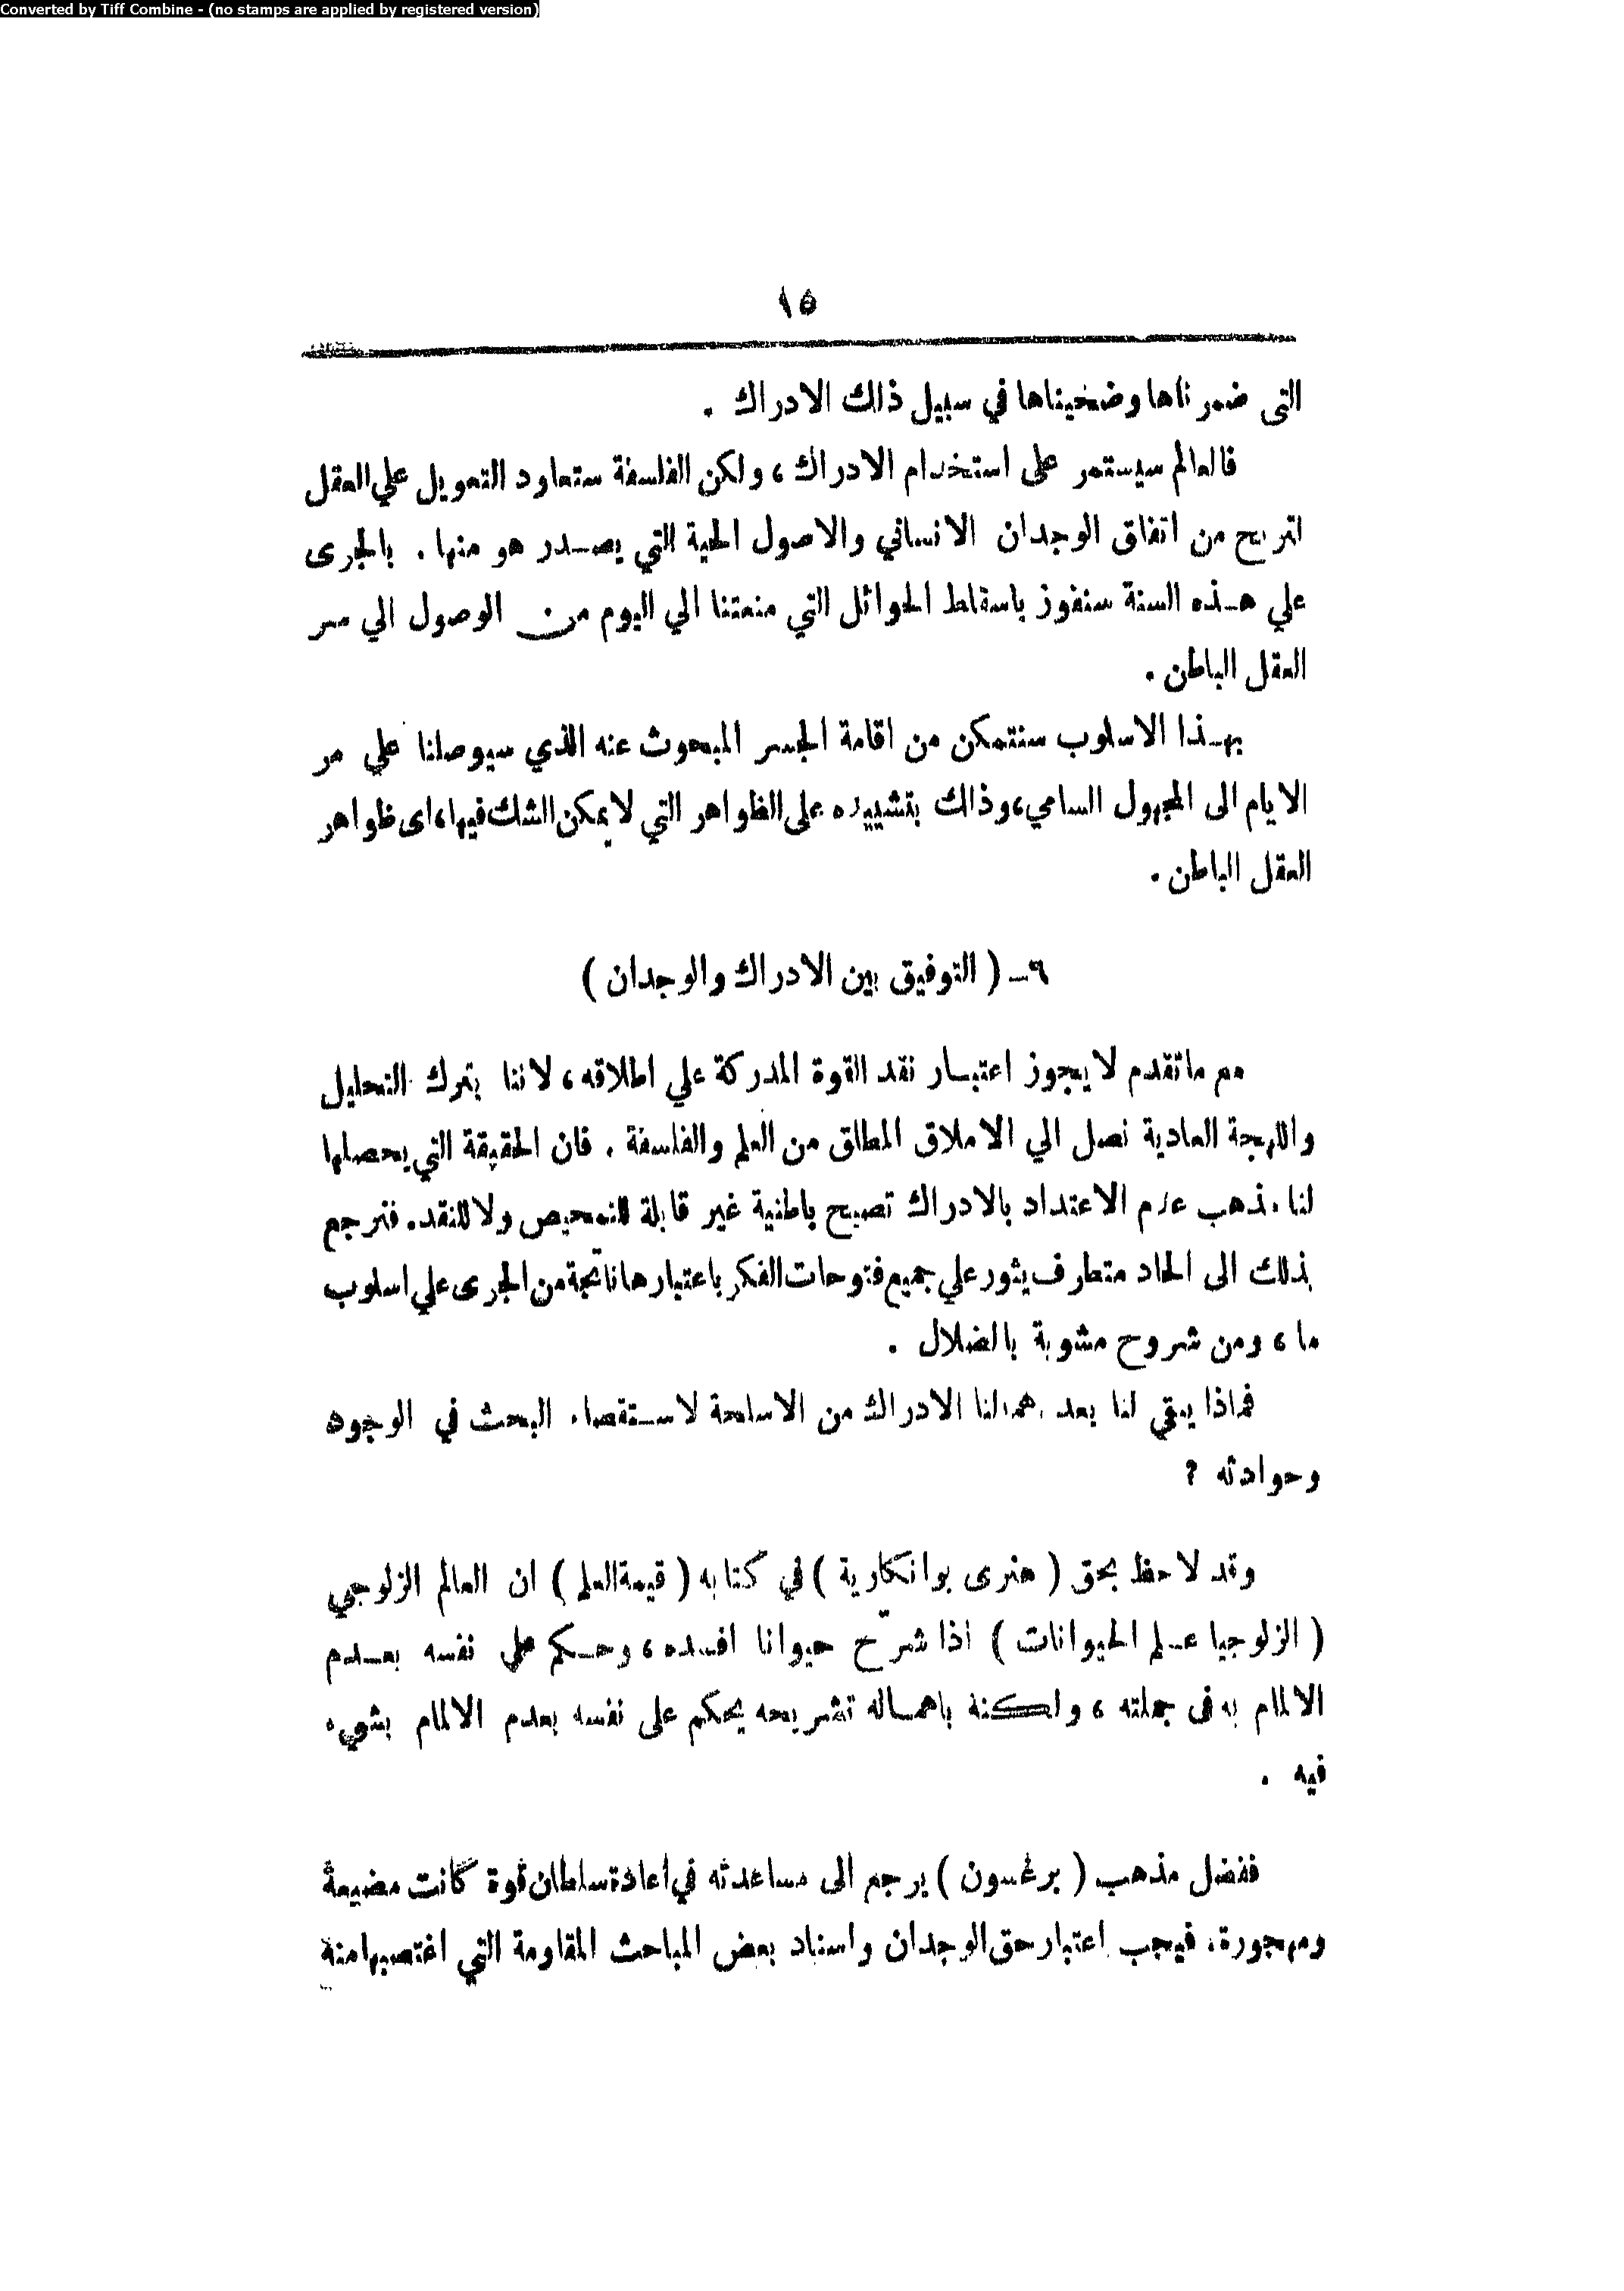 Converted by Tiff Combine - (no stamps are applied by registered version)
١٥
التى ضمرناها وضخيناها في سبيل ذلك الادراك .
فالعالم سيستمر على استخدام الادراك ، ولكن الفلسفة ستعاود التعويل علي العقل
لتربح من اتفاق الوجدان الانساني والاصول الحية التي يصدر هو منها . بالجرى
علي هذه السنة سنفوز باسقاط الحوائل التي منعتنا الي اليوم من الوصول الي سر
العقل الباطن .
بهذا الاسلوب سنتمكن من اقامة الجسر المبحوث عنه الذي سيوصلنا علي مر
الايام الى المجهول السامي، وذلك بتشييده على الظواهر التي لا يمكن الشك فيها، اى ظواهر
العقل الباطن .
٩ـ ( التوفيق بين الادراك والوجدان )
مع ما تقدم لا يجوز اعتبار نقد القوة المدركة علي اطلاقه ، لاننا بترك التحليل
واللهجة العادية نصل الي الاملاق المطلق من العلم والفلسفة . فان الحقيقة التي يحصلها
لنا مذهب عدم الاعتداد بالادراك تصبح باطنية غير قابلة للتمحيص ولا للنقد. فنرجع
بذلك الى الحاد متطرف يثور علي جميع فتوحات الفكر باعتبارها ناتجة من الجرى علي اسلوب
ما ، ومن شروح مشوبة بالضلال .
فماذا يبقي لنا بعد همالنا الادراك من الاسلحة لاستقصاء البحث في الوجود
وحوادثه ؟
وقد لاحظ بحق ( هنرى بوانكارية ) في كتابه ( قيمة العلم ) ان العالم الزلوجي
( الزلوجيا علم الحيوانات ) اذا شرّح حيوانا افسده ، وحكم علي نفسه بعدم
الالمام به فى جملته ، ولكنة باهماله تشريحه يحكم على نفسه بعدم الالمام بشيء
فيه .
ففضل مذهب ( برغسون ) يرجع الى مساعدته في اعادة سلطان قوة كانت مضيعة
ومهجورة، فيجب اعتبار حق الوجدان واسناد بعض المباحث المقاومة التي اغتصبها منه